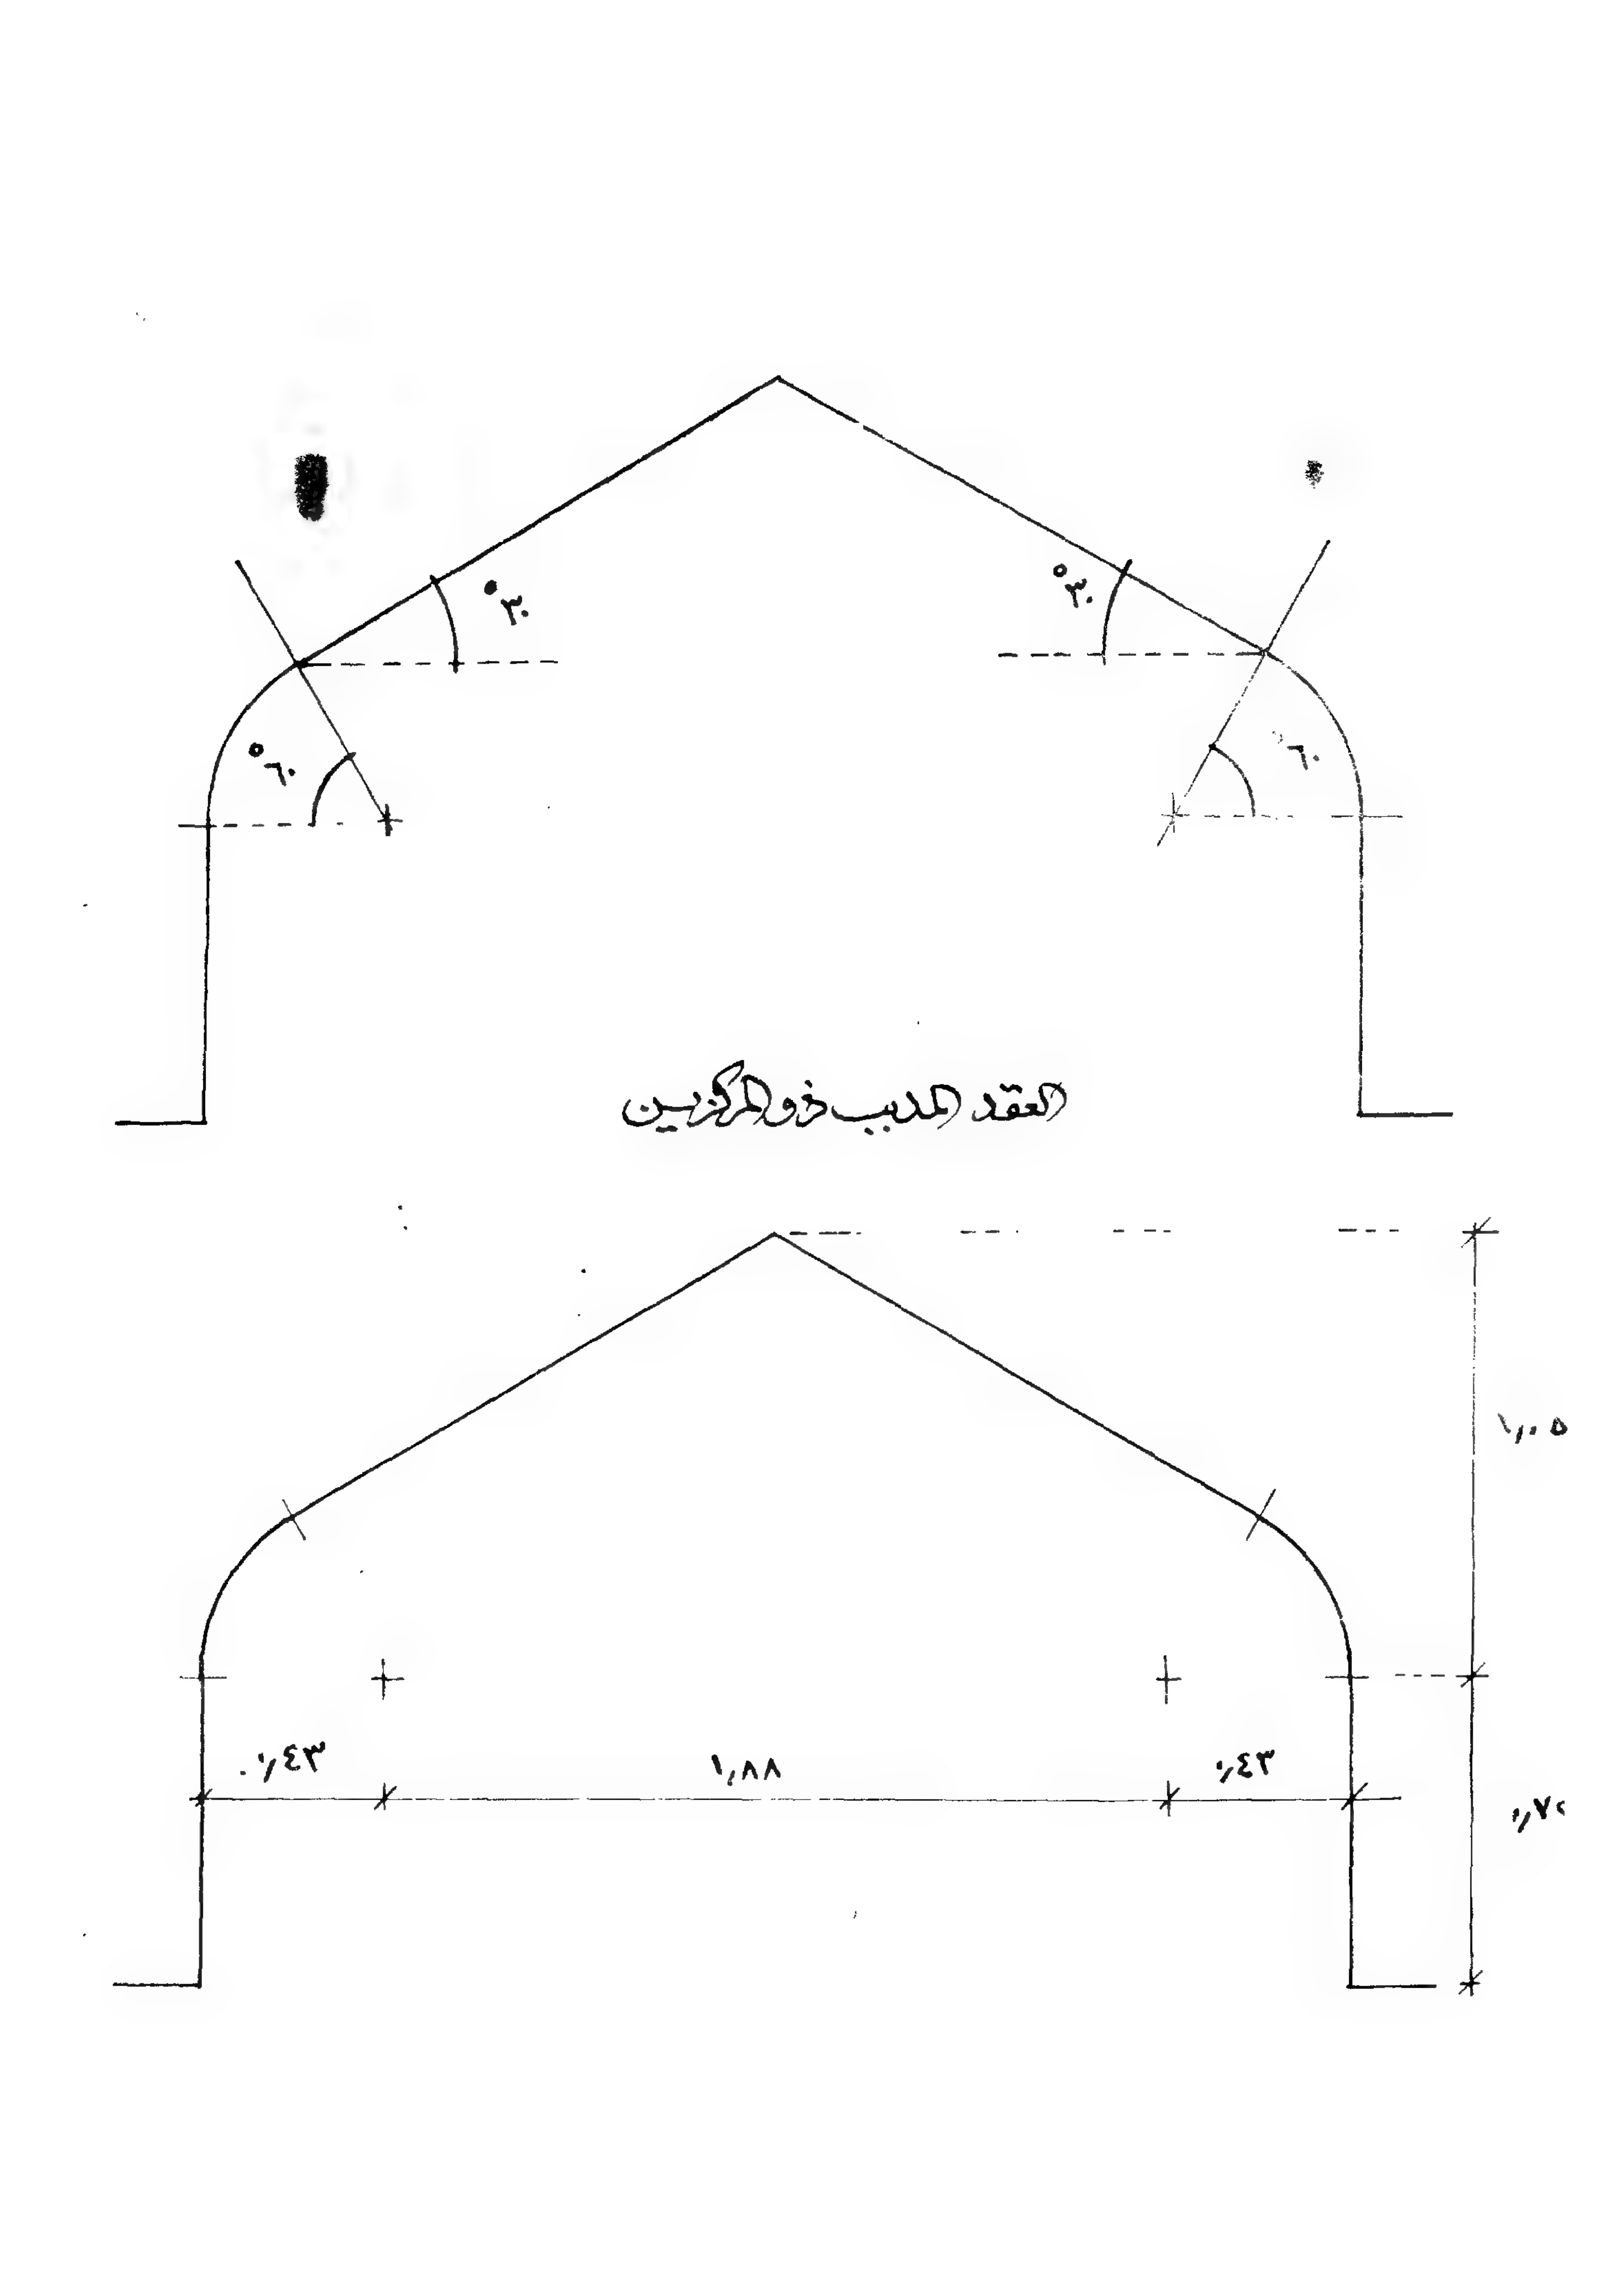 °٣٠
°٣٠
°٦٠
°٦٠
العقد المدبب ذو المركزين
١,٠٥
٠,٤٣
١,٨٨
٠,٤٣